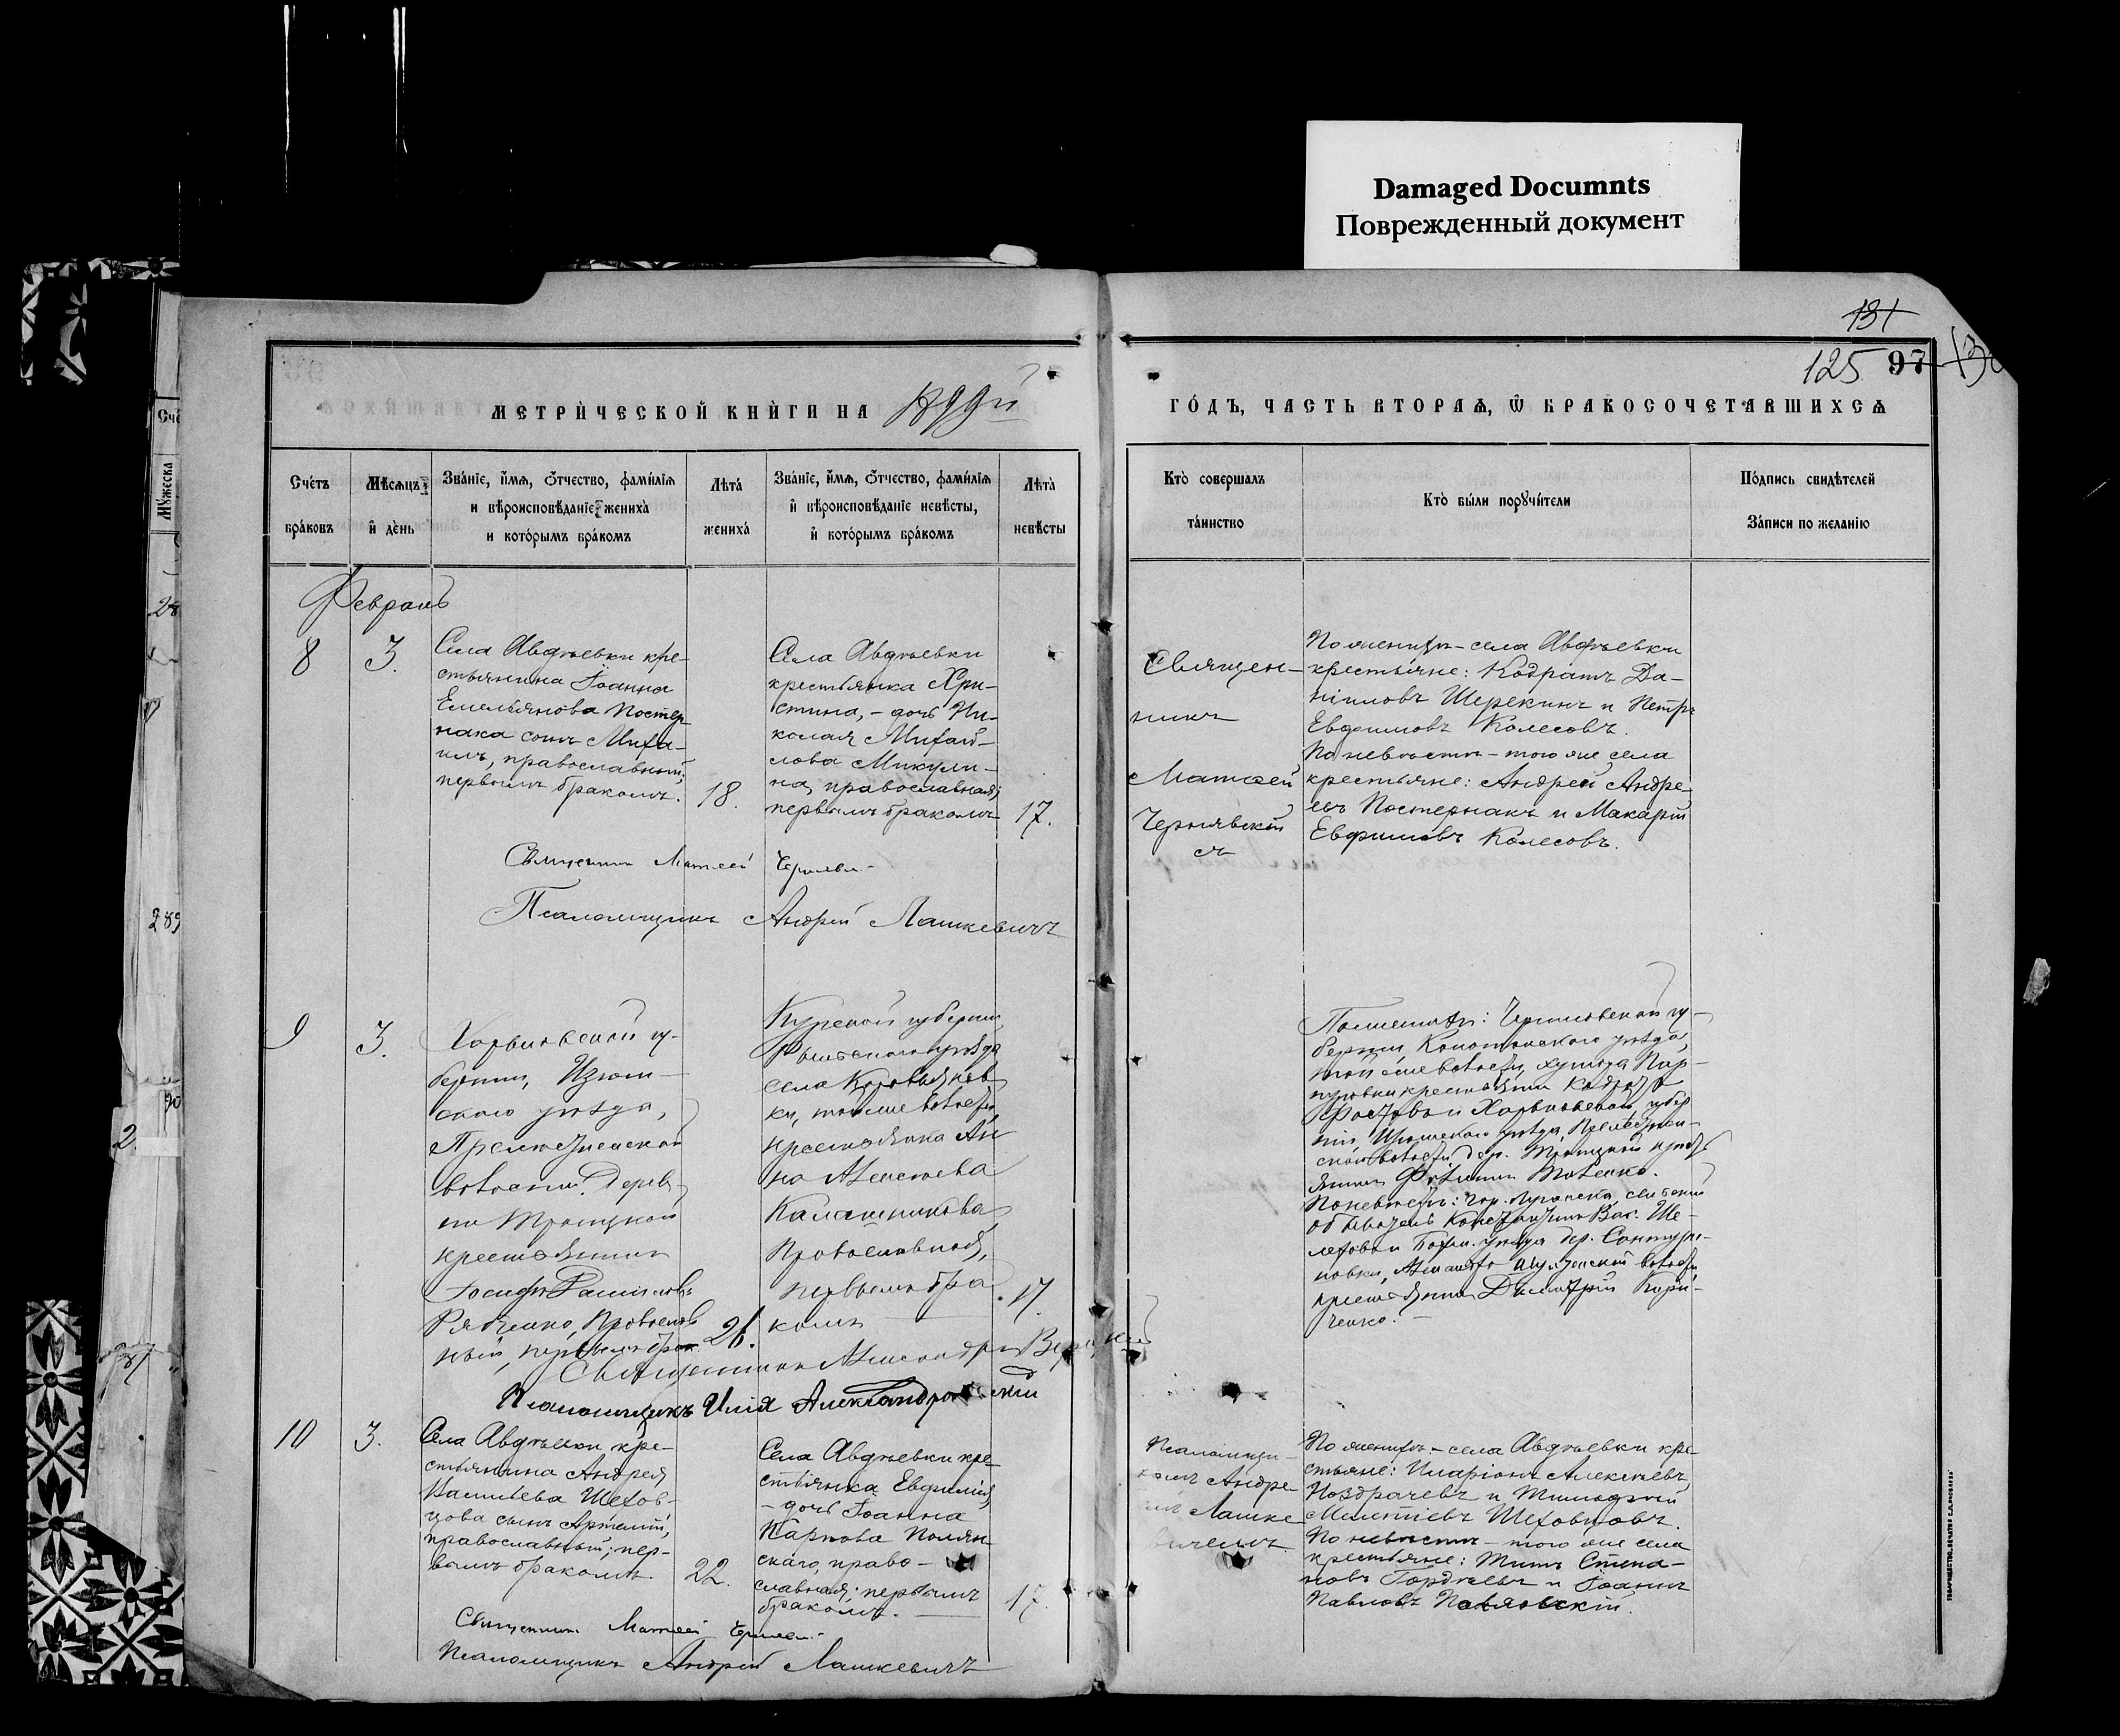 Damaged Documnts
Поврежденный документ
131
125 97
МЕТРИ́ЧЕСКОЙ КНИ́ГИ НА
ГО́ДЪ, ЧАСТЬ ВТОРАѦ, Ѿ БРАКОСОЧЕТАВШИХСѦ
Сче́тъ
бра́ковъ
Мѣ́сѧцъ
и҆ де́нь
Зва́нїе, и҆́мѧ, ѻ҆́тчество, фами́лїѧ
и вѣроисповѣ́данїе жениха̀
и кото́рымъ бра́комъ
Лѣта̀
жениха̀
Зва́нїе, и҆́мѧ, ѻ҆́тчество, фами́лїѧ
и҆ вѣроисповѣ́данїе невѣ́сты,
и҆ кото́рымъ бра́комъ
Лѣта̀
невѣ́сты
Кто̀ соверша́лъ
та́инство
Кто̀ бы́ли порꙋчи́тели
По́дпись свидѣ́телей
За́писи по жела́нїю
Февраль
8
3.
Села Авдѣевки кре-
стьянина Іоанна
Емельянова Постер
нака сынъ Миха-
илъ, православный,
первымъ бракомъ.
18.
Села Авдѣевки
крестьянка Хри-
стина, - дочь Ни-
колая Михай-
лова Микули-
на, православная;
первымъ бракомъ
17.
Священ-
никъ
Матѳей
Чернявскій
съ
По женихѣ - села Авдѣевки
крестьяне: Кодратъ Да-
ніиловъ Шерекинъ и Петръ
Евфимовъ Колесовъ.
По невѣстѣ - того же села
крестьяне: Андрей Андре-
евъ Постернакъ и Макарій
Евфимовъ Колесовъ.
Священникъ Матѳей
Псаломщикъ Андрей Лашкевичъ
9
3.
Харьковской гу-
берніи, Изюм-
скаго уѣзда,
волости, Дерев-
ни Троицкой
крестьянинъ
Іосифъ
Рябченко, Православ
ный, первымъ брак
26.
Курской губерніи
Рыльскаго уѣзда
села Коровяков-
ки, той же волости
крестьянка Ан
на Алексѣева
Калашникова
Православной,
первымъ бра
комъ
17.
По женихѣ: Черниговской гу-
берніи, Конотопскаго уѣзда,
той же волости, хутора
крестьянинъ
и Харьковской губер
ніи, Изюмскаго уѣзда,
волости дер. Троицкой кресть
янинъ
По невѣстѣ: гор. Луганска
обыватель Константинъ Вас. Ше-
уѣзда дер. Сантури-
новки, волости
крестьянинъ Димитрій Корні-
ченко. -
Священникъ Александръ
Псаломщикъ Илія Александровскій
10
3.
Села Авдѣевки, кре-
стьянина Андрея
Васильева Шехов-
цова сынъ Артемій,
православный; пер-
вымъ бракомъ
22.
Села Авдѣевки кре
стьянка Евфимія,
- дочь Іоанна
Карпова Полян
скаго, право-
славная; первымъ
бракомъ. -
17.
Псаломщи-
комъ Андре
емъ Лашке
вичемъ
По женихѣ - села Авдѣевки кре
стьяне: Иларіонъ Алексѣевъ
Ноздрачевъ и Тимоѳей
Мелетіевъ Шеховцовъ.
По невѣстѣ - того же села
крестьяне: Титъ Степа-
новъ Гордѣевъ и Іоаннъ
Павловъ Полянскій.
Священникъ Матѳей
Псаломщикъ Андрей Лашкевичъ